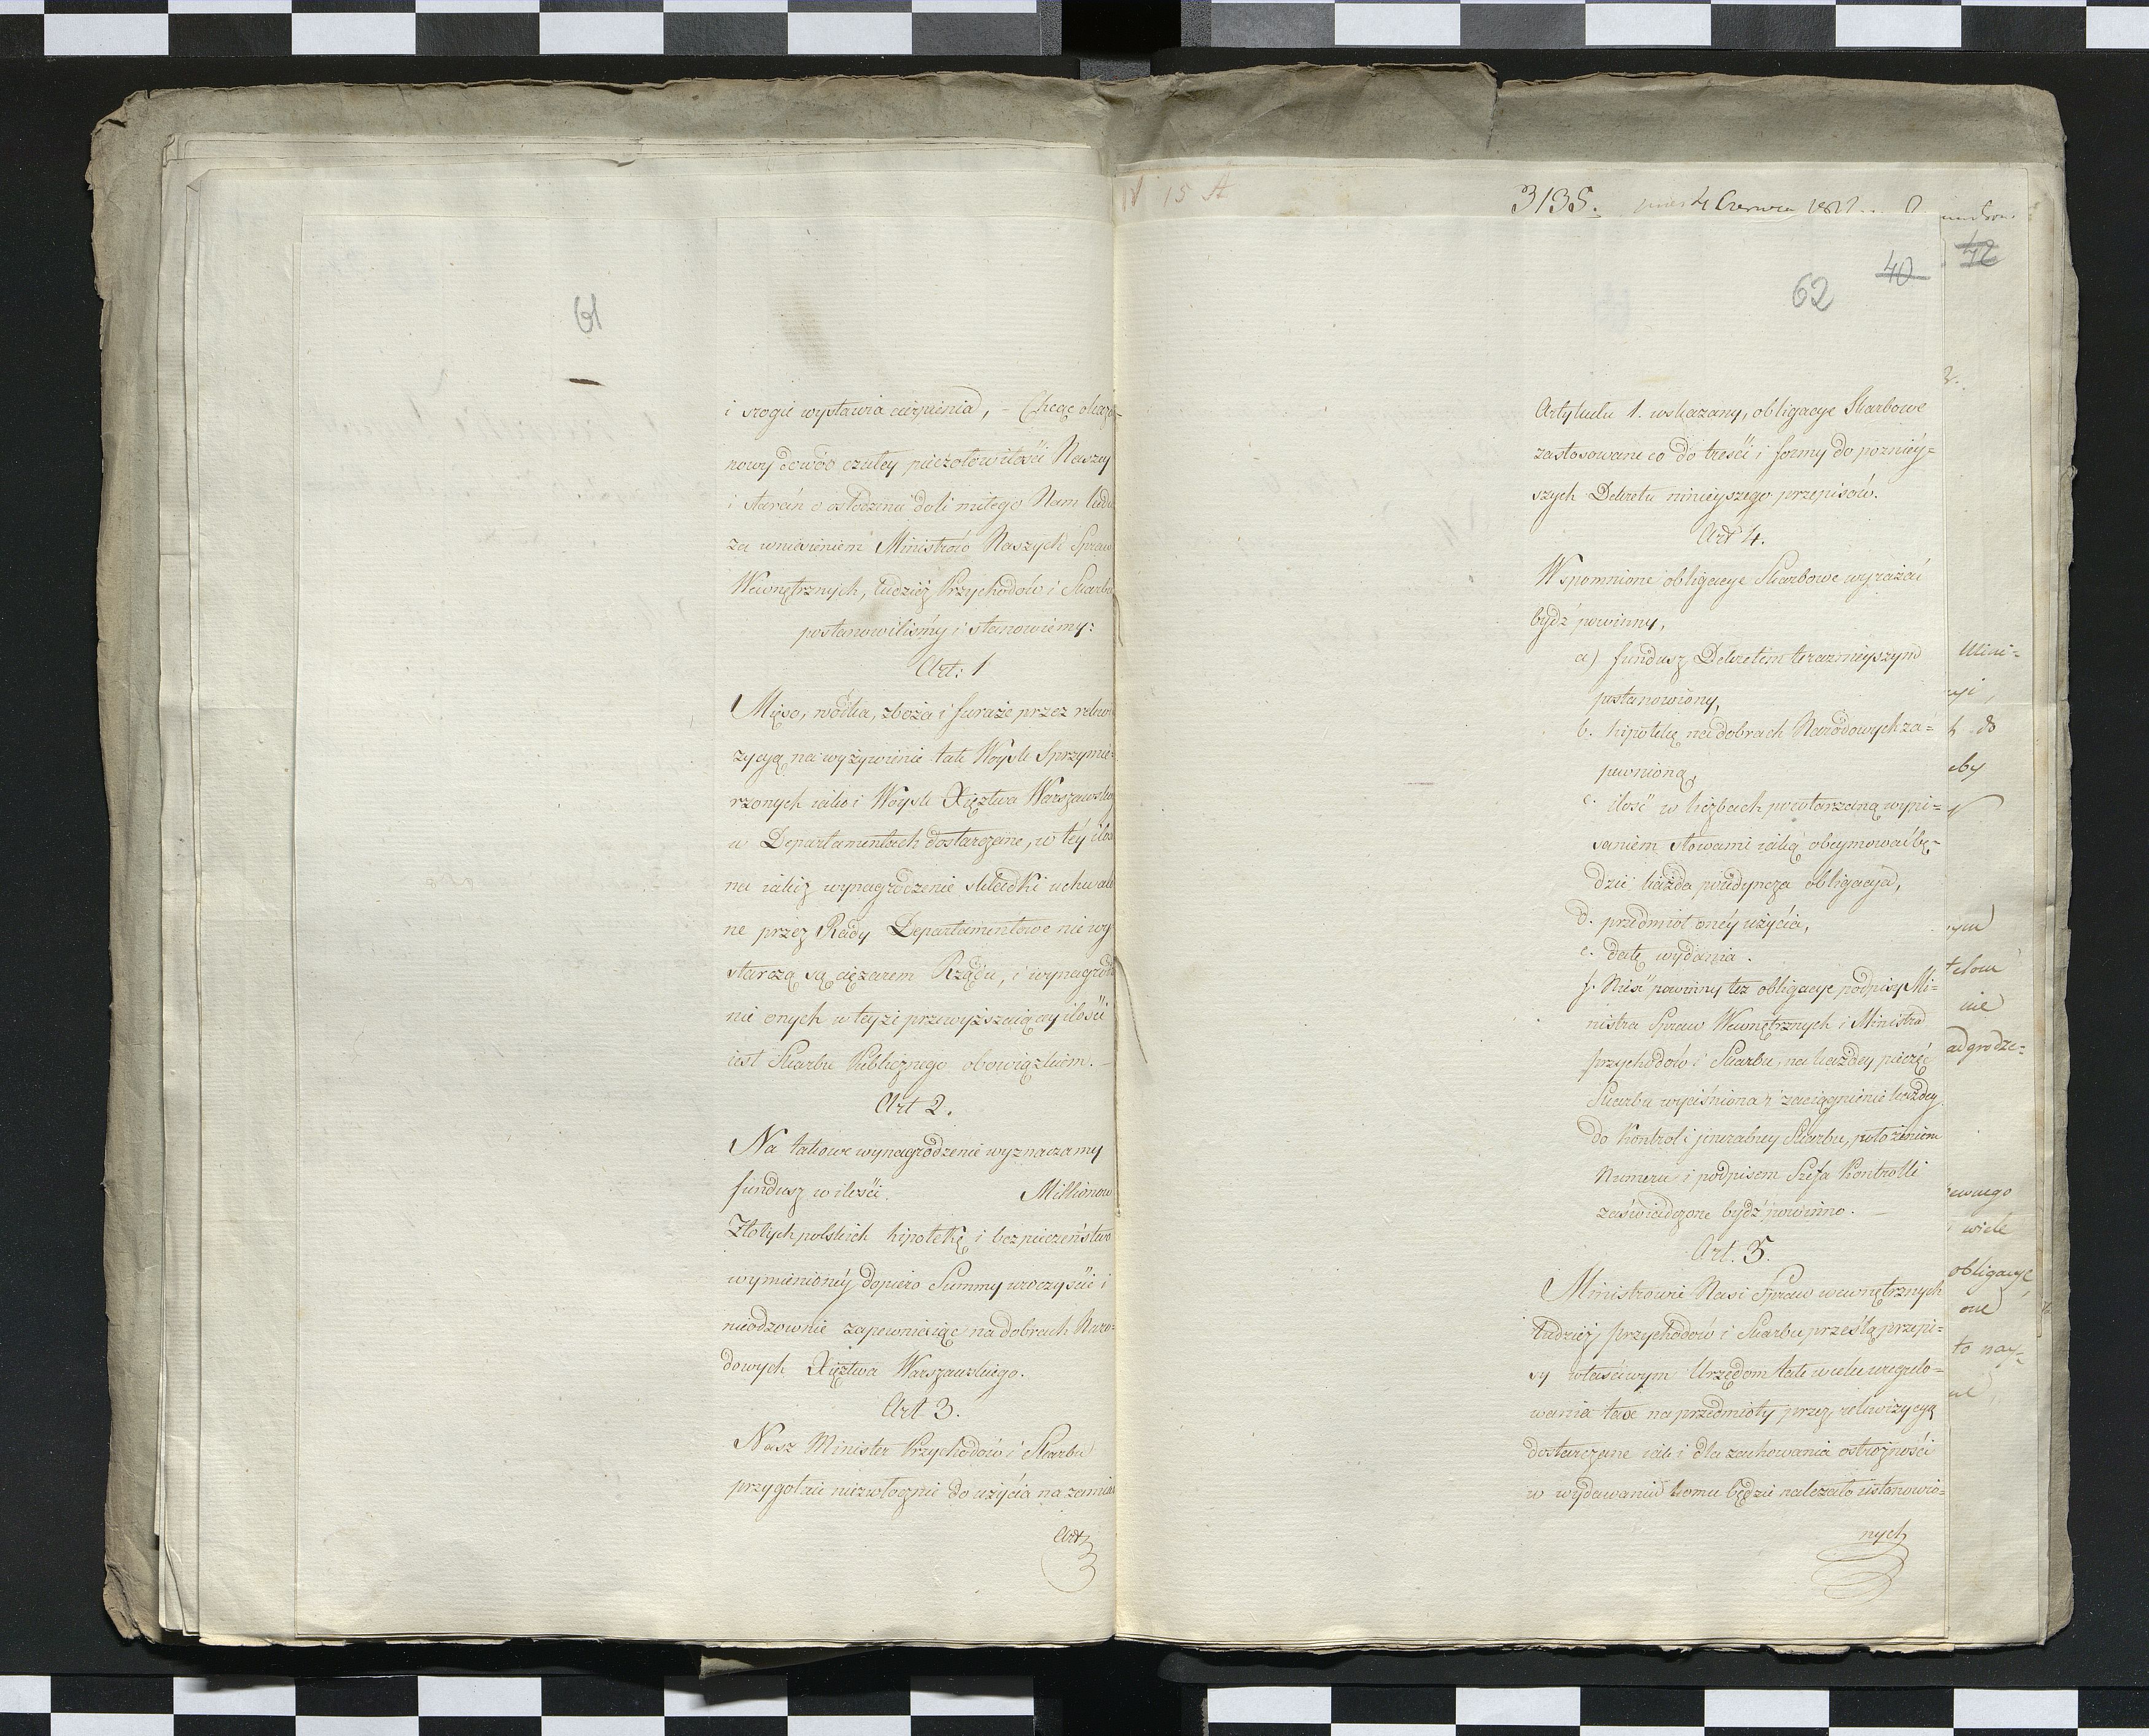 61
i srogie wystawia cierpienia, – Chcąc okazać
nowy dowód czułey pieczołowitości Naszey
i starań o osłodzenie doli miłego Nam ludu
za wniesieniem Ministrów Naszych Spraw
Wewnętrznych, tudzież Przychodów i Skarbu
postanowiliśmy i stanowiemy:
Art: 1
Mięso, wódka, zboża i furaże przez rekwi
zycyą na wyżywienie tak Woysk Sprzymie=
rzonych iako i Woysk Xięztwa Warszawskie
w Departamentach dostarczone, w tey ilo
na iakiey wynagrodzenie składki uchwalo
ne przez Rady Departamentowe nie wy
starczą są ciężarem Rządu, i wynagrodze
nie onych w teyże przewyższaiącey ilości
iest Skarbu Publicznego obowiązkiem. –
Art 2.
Na takowe wynagrodzenie wyznaczamy
fundusz w ilości Millionow
Złotych polskich hipotekę i bezpieczeństwo
wymienioney dopiero Summy uroczyście i
nieodzownie zapewniaiąc na dobrach Naro=
dowych Xięztwa Warszawskiego.
Art 3.
Nasz Minister Przychodów i Skarbu
przygotuie niezwłocznie do użycia na zamiar
Art
IV 15 A
3135. 4 Czerwca
42
40
62
Artykułu 1. wskazany, obligacye Skarbowe
zastosowane co do treści i formy do poźniey=
szych Dekretu ninieyszego przepisów.
Art 4.
Wspomnione obligacye Skarbowe wyrażać
bydź powinny,
a) fundusz Dekretem teraznieyszym
postanowiony,
b. hipotekę na dobrach Narodowych za=
pewnioną,
c. ilość w liczbach powtarzaną wypi=
saniem słowami iaką obeymować bę=
dzie każda poiedyncza obligacya,
d. przedmiot oney użycia,
e. datę wydania.
f. Nieść powinny też obligacye podpisy Mi=
nistra Spraw Wewnętrznych i Ministra
Przychodów i Skarbu, na każdey pieczęć
Skarbu wyciśniona i zaciągnienie każdey
do Kontroli jeneralney Skarbu, położeniem
Numeru i podpisem Szefa Kontrolli
zaświadczone bydź powinno. –
Art. 5.
Ministrowie Nasi Spraw wewnętrznych
tudzież przychodów i Skarbu prześlą przepi=
sy właściwym Urzędom tak w celu uregulo=
wania tax na przedmioty przez rekwizycyą
dostarczone iak i dla zachowania ostrożności
w wydawaniu komu będzie należało ustanowio=
nych
Mini=
h do
aby
nie
adgrodze=
wiele
obligacye
one
to nay=